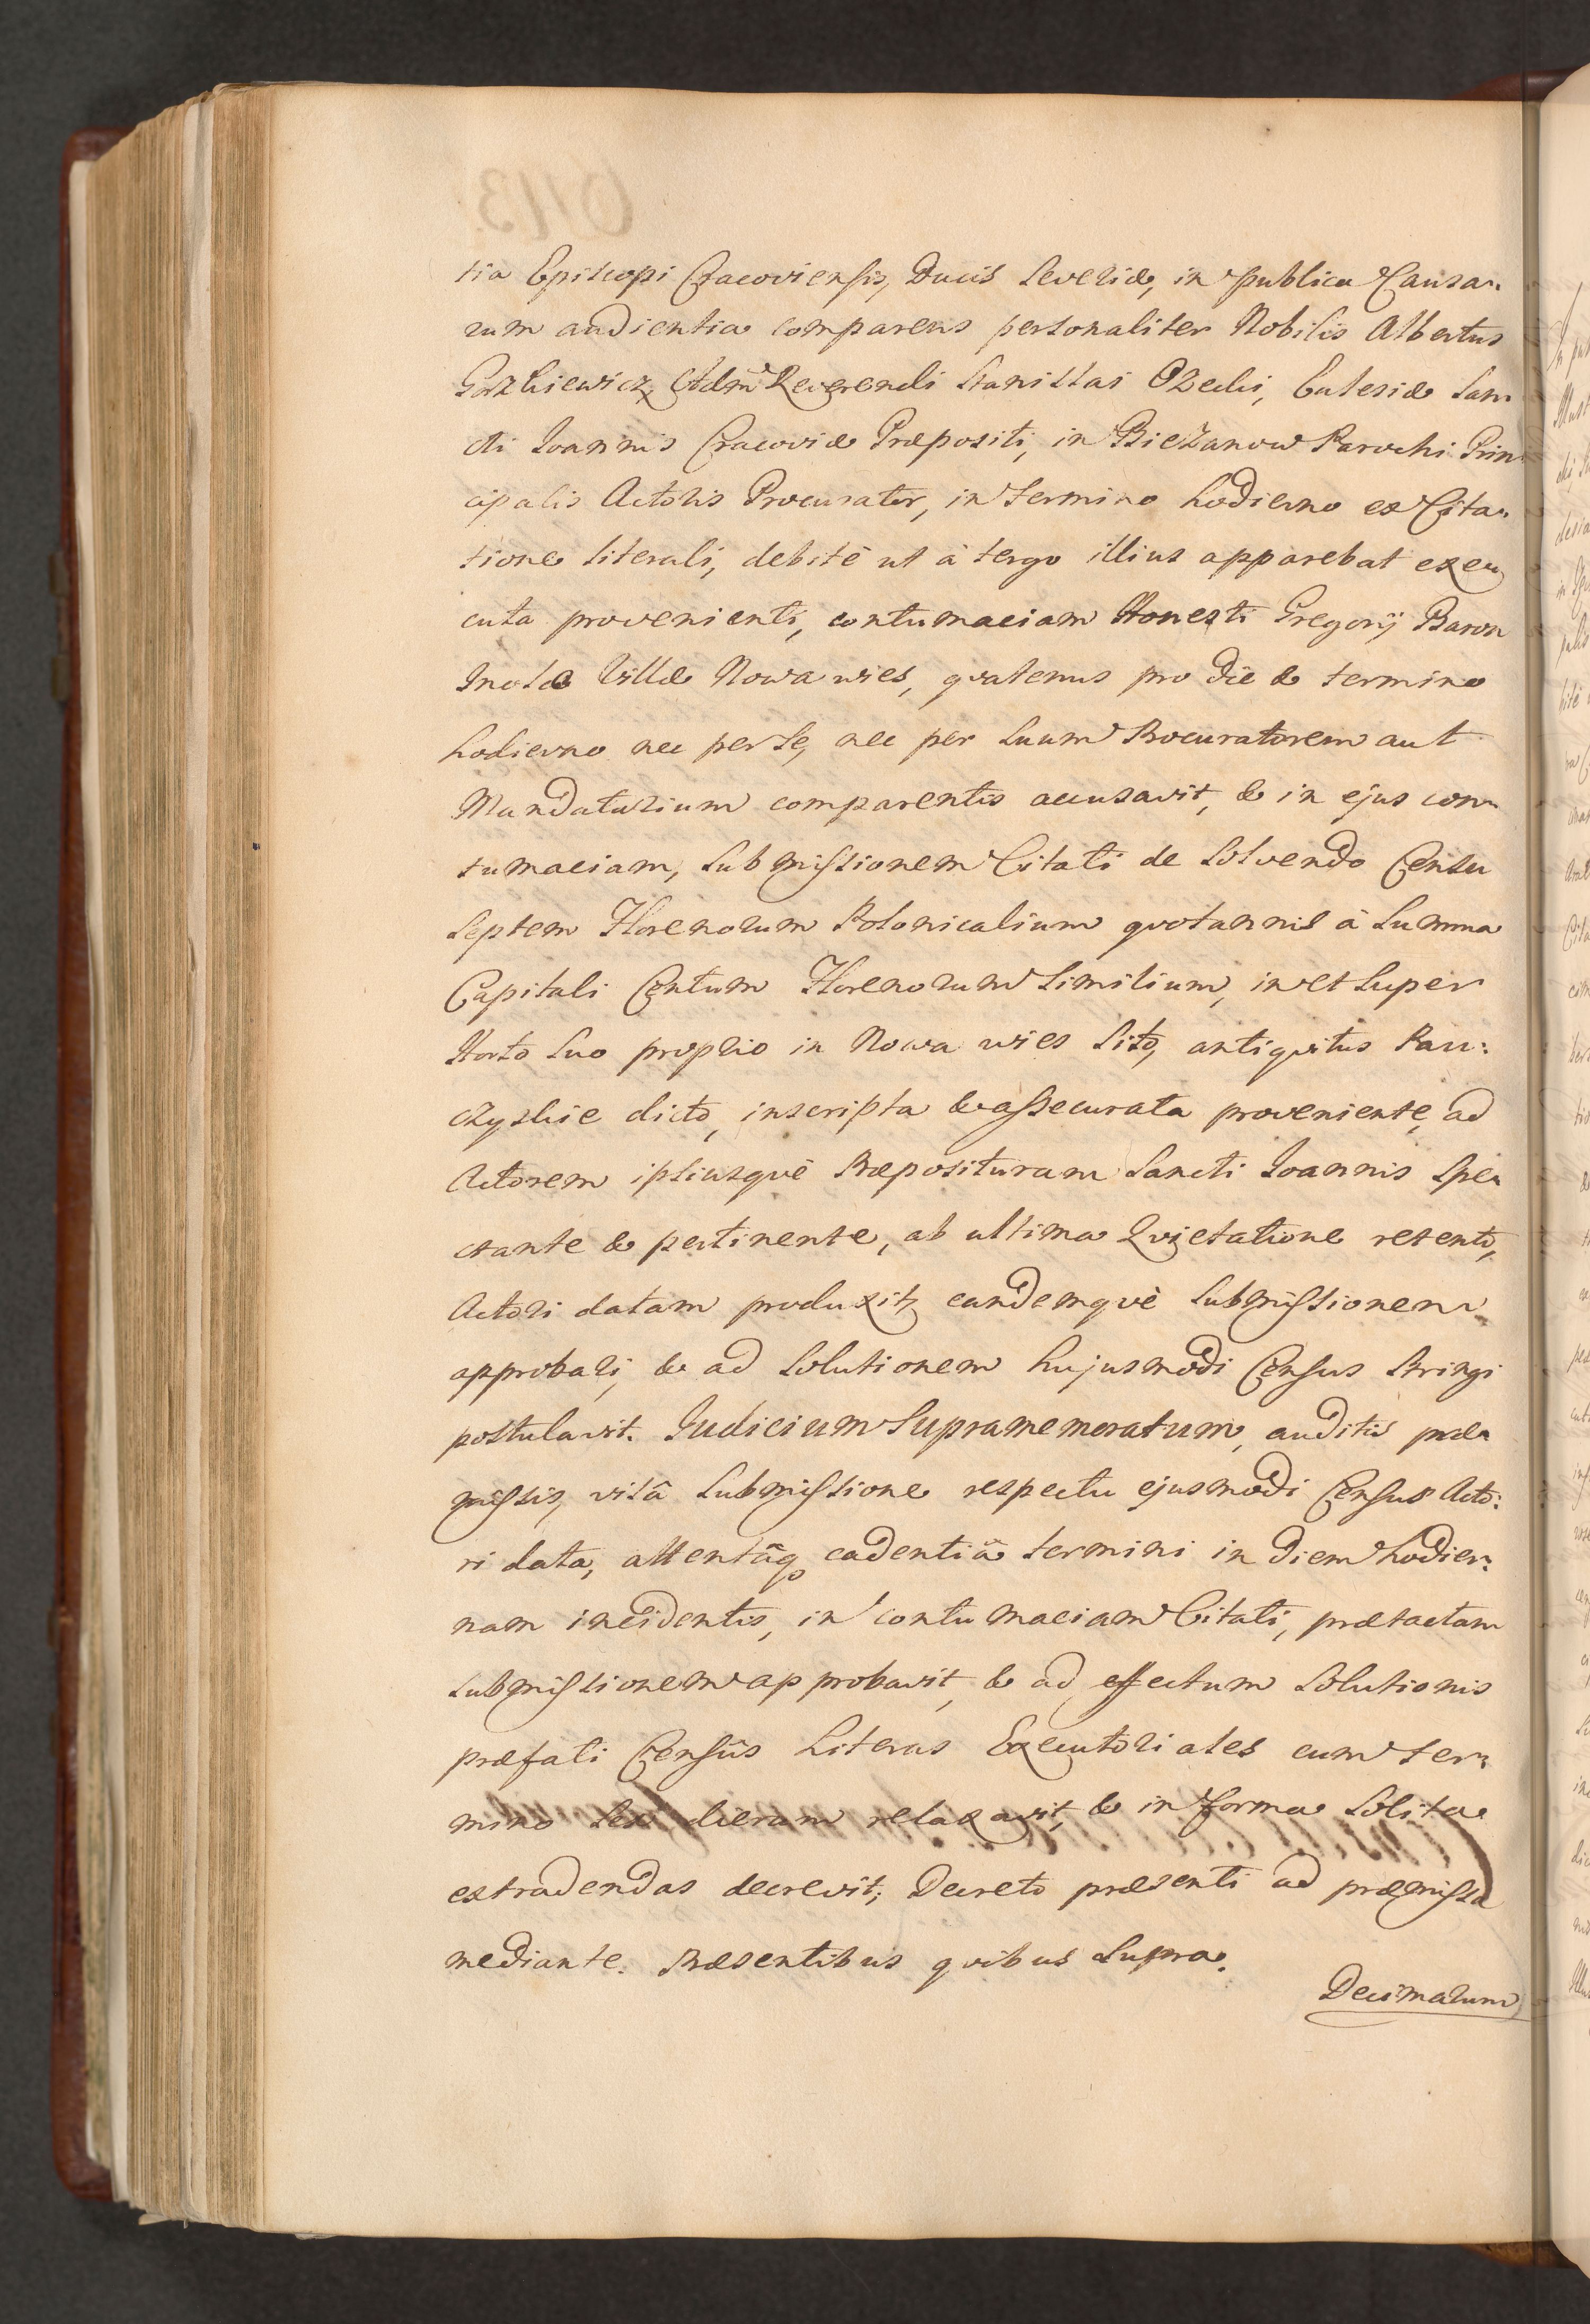 tia Episcopi Cracoviensis, Ducis Severiæ, in publica Causa-
rum audientia comparens personaliter Nobilis Albertus
Gorzkiewicz, Adm Reverendi Stanislai Ozechi, Eclesiæ San-
cti Joannis Cracoviæ Præpositi, in Biezanow Parochi Prin-
cipalis Actoris Procurator, in termino hodierno ex Cita-
tione literali, debitè ut à tergo illius apparebat exe-
cuta provenienti, contumaciam Honesti Gregorij Baron
Incolæ Villæ Nowa wies, qvatenus pro die & termino
hodierno nec per se, nec per suum Procuratorem aut
Mandatarium comparentis accusavit, & in ejus con-
tumaciam, submissionem Citati de solvendo Censu
septem Florenorum Polonicalium qvotannis à summa
Capitali Centum Florenorum similium, in et super
Horto suo proprio in Nowa wies sito, antiqvitus
dicto, inscripta & assecurata proveniente, ad
Actorem ipsiusqvè Præposituram Sancti Joannis spe-
ctante & pertinente, ab ultima Qvietatione retento,
Actori datam produxit, eandemqvè submissionem
approbari, & ad solutionem hujusmodi Census stringi
postulavit. Judicium Supramemoratum, auditis præ-
missis, visâ submissione respectu ejusmodi Census Acto:
ri data, attentâq cadentiâ termini in diem hodier-
nam incidentis, in contumaciam Citati, prætactam
submissionem approbavit, & ad effectum solutionis
præfati Censûs Literas Executoriales cum ter-
mino sex dierum relaxavit, & in forma solita
extradendas decrevit; Decreto præsenti ad præmissa
mediante. Præsentibus qvibus supra.
Decimarum